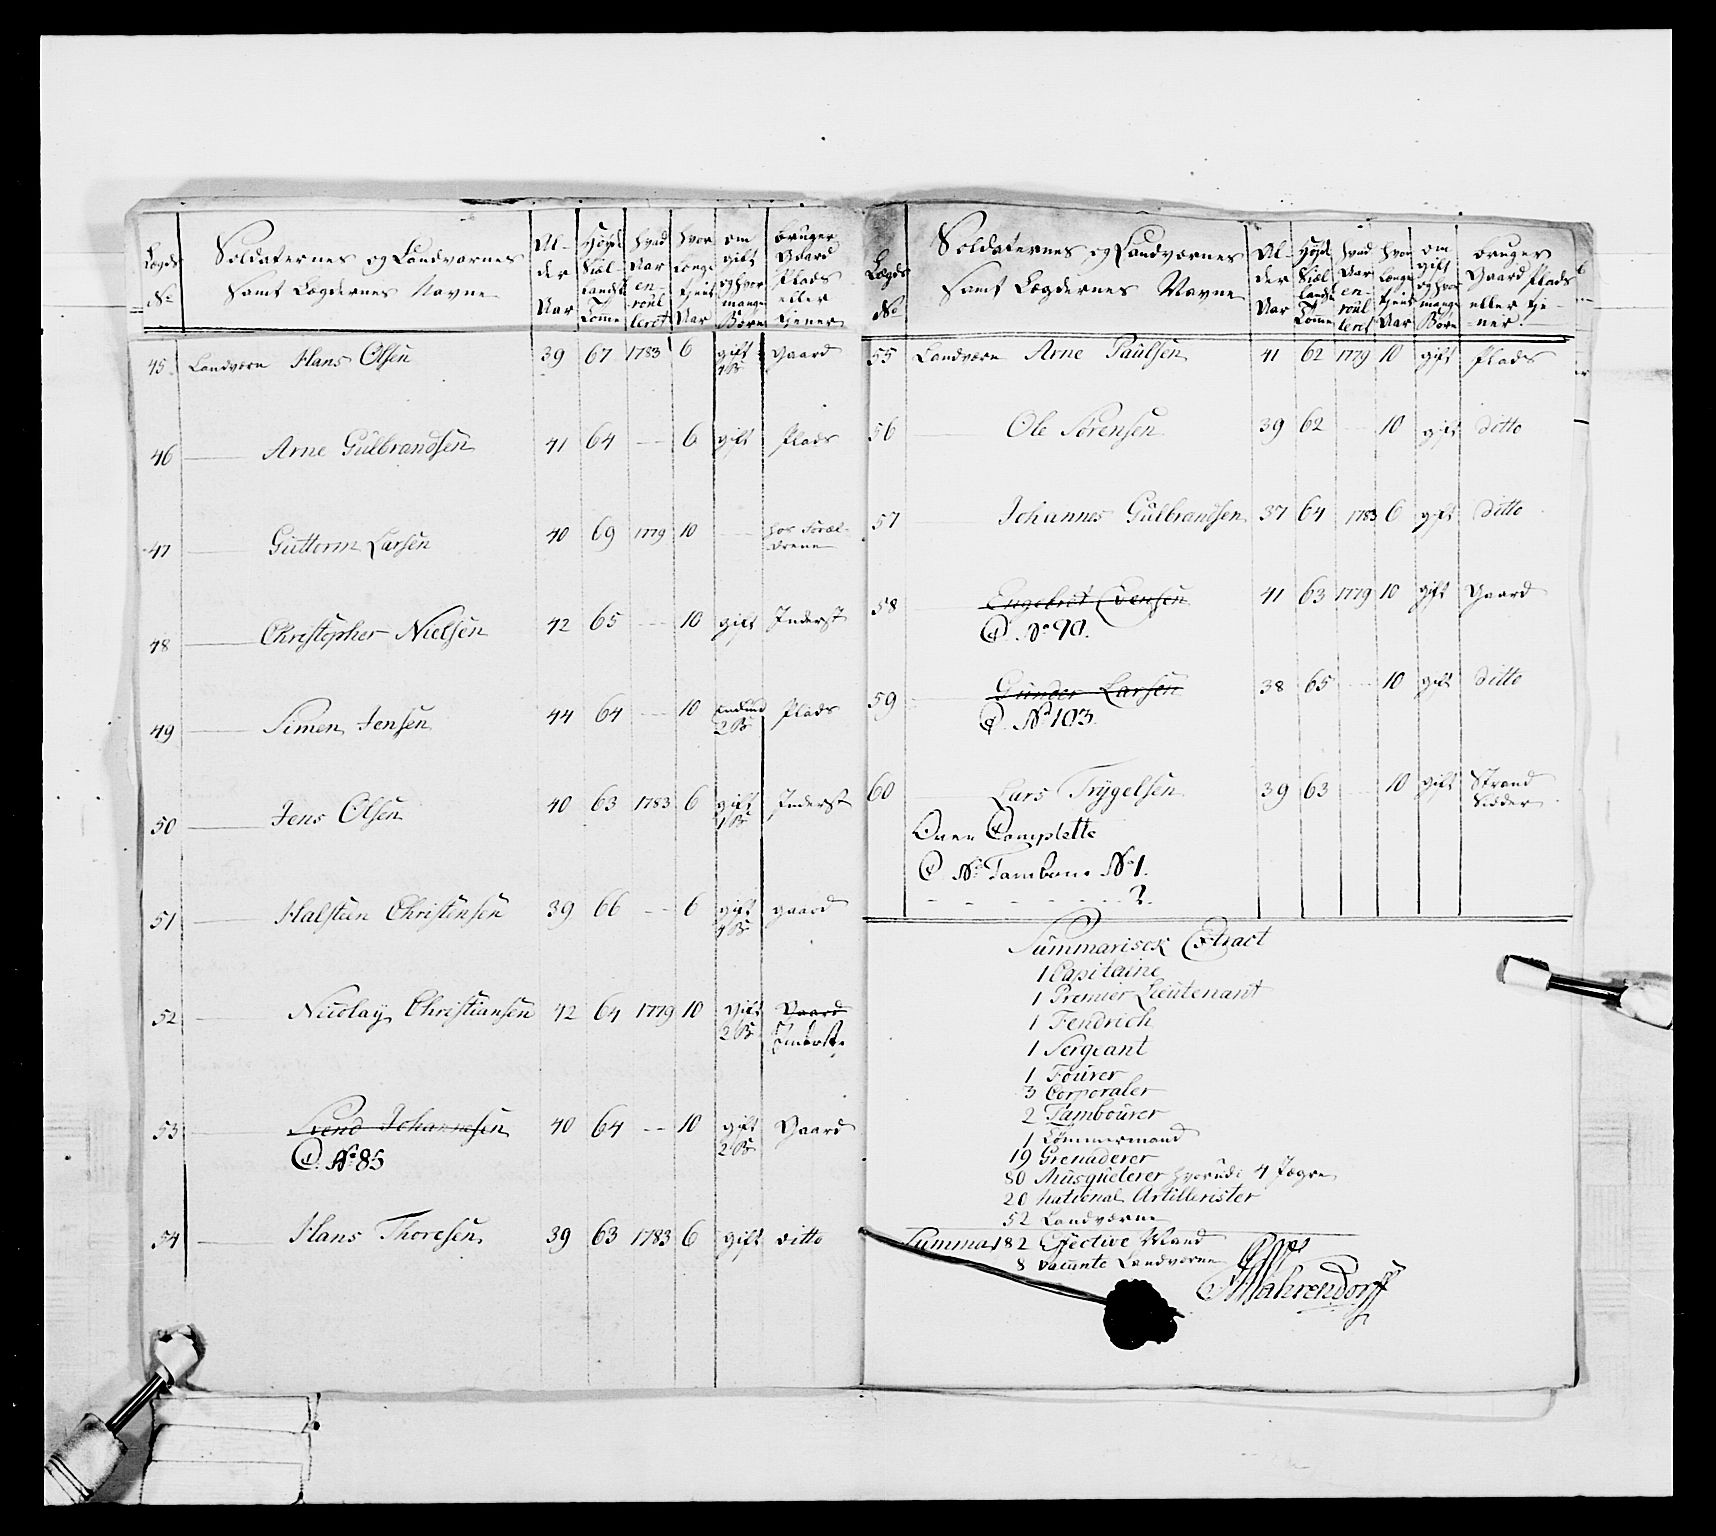 Lægds No
Soldaternes og Landværnes
Samt Lægdernes Navne
Al-
der
Aar
Høyde
Siæl-
landsk
Tomme
Hvad
Aar
en-
roul
leret
Hvor
Længe
tjent
Aar
om
gift
og hvor
mange
Børn
bruger
Gaard
Plads
eller
tjener
45. Landværn Hans Olsen 39 67 1783 6 gift Gaard
4 B
46 Arne Gulbrandsen 41 64 — 6 gift Plads
47 Guttorm Larsen 40 69 1779 10 — hos Foræl-
drene
48 Christopher Nielsen 42 65 — 10 gift Inderst
49 Simen Jensen 44 64 — 10 Plads
2 B
50 Jens Olsen 40 63 1783 6 gift Inderst
1 B
51 Halsteen Christensen 39 66 — 6 gift gaard
4 B
52 Nicolay Christiansen 42 64 1779 10 gift Gaard
2 B
53 Svend Johannesen 40 64 — 10 gift Gaard
2 B
C. No 85
54 Hans Thoresen 39 63 1783 6 gift ditto
Lægds No
Soldaternes og Landværnes
Samt Lægdernes Navne
Al-
der
Aar
Høyde
Siæl-
landsk
Tomme
Hvad
Aar
en-
roul
leret
Hvor
Længe
tjent
Aar
om
gift
og hvor
mange
Børn
bruger
Gaard Plads
eller tje-
ner
55 Landværn Arne Paulsen 41 62 1779 10 gift Plads
56 Ole Sørensen 39 62 — 10 gift ditto
57 Johannes Gulbrandsen 37 64 1783 6 gift ditto
58 Engebret Evensen 41 63 1779 10 gift Gaard
C. No 90.
59 Gunder Larsen 38 65 — 10 gift ditto
C. No 103.
60 Lars Trygelsen 39 63 — 10 gift Strand
Sidder
Over Complette
C. No Tambour No 1.
— — — — — 2.
Summarisck Extract
1 Capitaine
1 Premier Lieutenant
1 Fendrich
1 Sergeant
1 Fourer
3 Corporaler
2 Tambourer
1 Tømmermand
19 Grenaderer
80 Musqueterer hvorudi 4 Jægre
20 National Artillerister
52 Landværne
Summa 182 Effective Mand
8 vacante Landværne
Wahrendorff